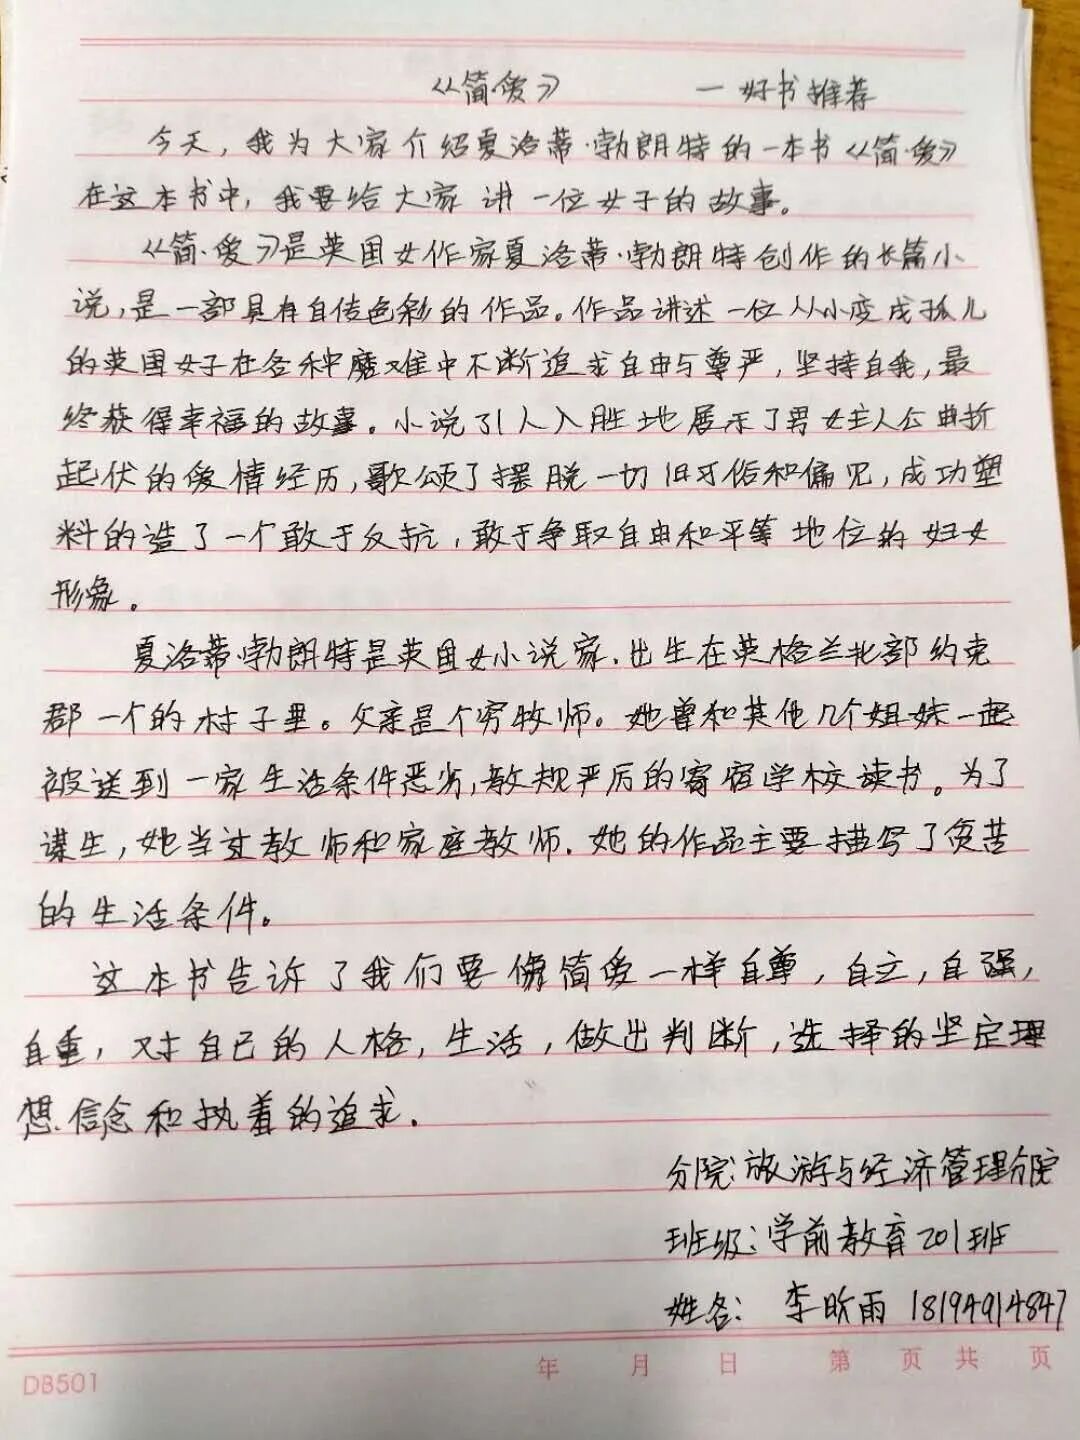 《简·爱》 一好书推荐
今天，我为大家介绍夏洛蒂·勃朗特的一本书《简·爱》
在这本书中，我要给大家讲一位女子的故事。
《简·爱》是英国女作家夏洛蒂·勃朗特创作的长篇小
说，是一部具有自传色彩的作品。作品讲述一位从小变成孤儿
的英国女子在各种磨难中不断追求自由与尊严，坚持自我，最
终获得幸福的故事。小说引人入胜地展示了男女主人公曲折
起伏的爱情经历，歌颂了摆脱一切旧习俗和偏见，成功塑
料的造了一个敢于反抗，敢于争取自由和平等地位的妇女
形象。
夏洛蒂·勃朗特是英国女小说家.出生在英格兰北部约克
郡一个的村子里。父亲是个穷牧师。她曾和其他几个姐妹一起
被送到一家生活条件恶劣,教规严厉的寄宿学校读书。为了
谋生，她当过教师和家庭教师.她的作品主要描写了贫苦
的生活条件。
这本书告诉了我们要像简爱一样自尊，自立，自强，
自重，对自己的人格，生活，做出判断，选择的坚定理
想.信念和执着的追求.
分院:旅游与经济管理分院
班级:学前教育201班
姓名: 李昕雨 18194914847
年 月 日 第 页 共 页
DB501